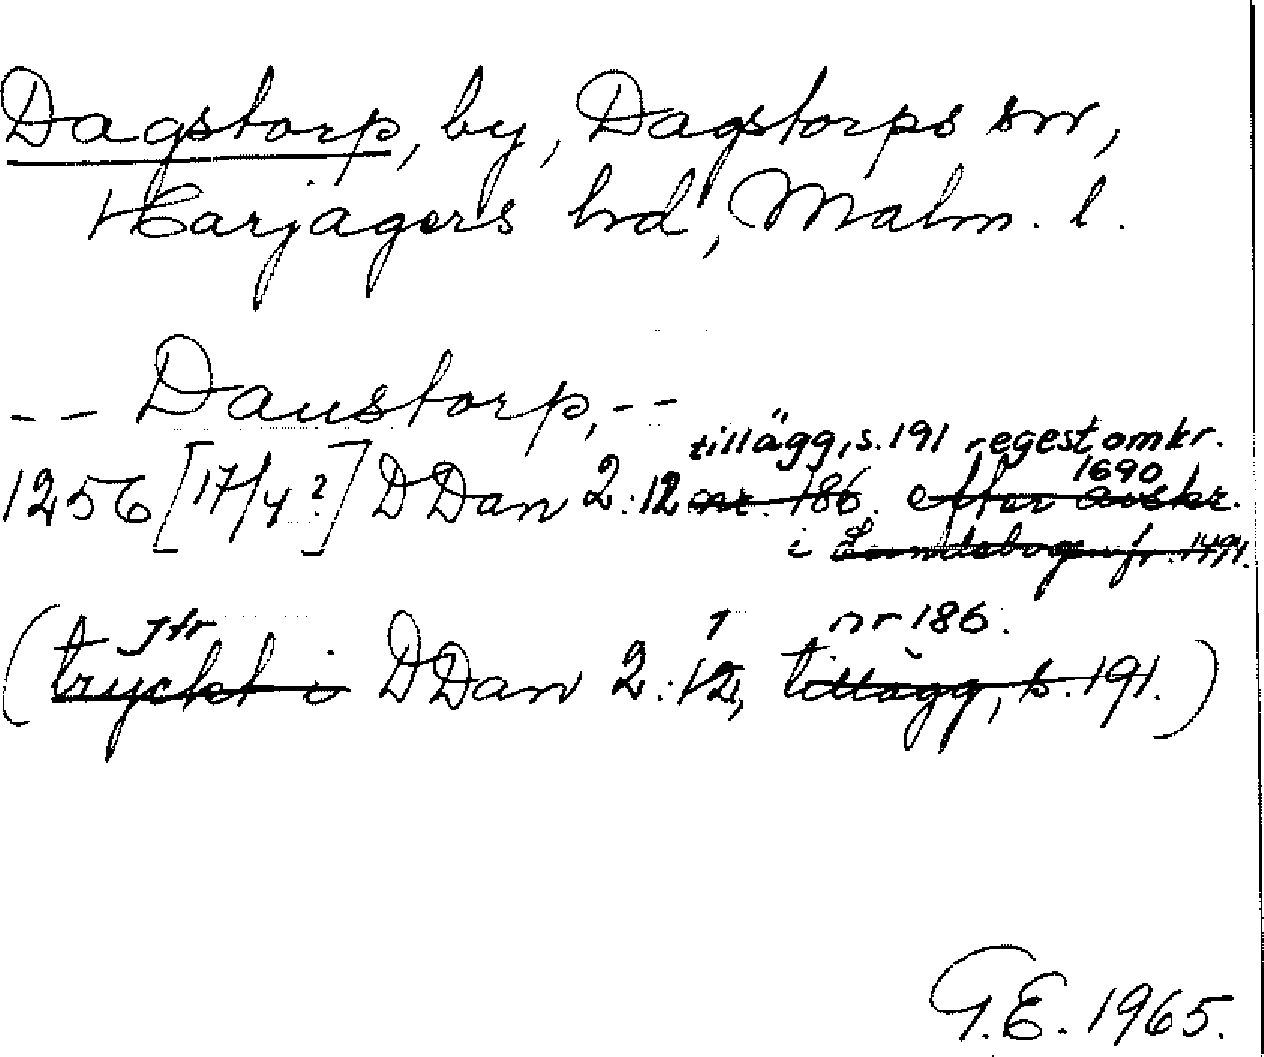 Dagstorp, by, Dagstorps sn,
Harjagers hd, Malm. l.
-- Daustorp, --
tillägg, s. 191 regest omkr.
1690
1256 [17/4 ?] DDan 2:12 nr. 186. efter avskr.
i Lundebogen fr. 1494.
Jfr 1 nr 186.
(tryckt i DDan 2:12, tillägg, s. 191.)
G.E. 1965.